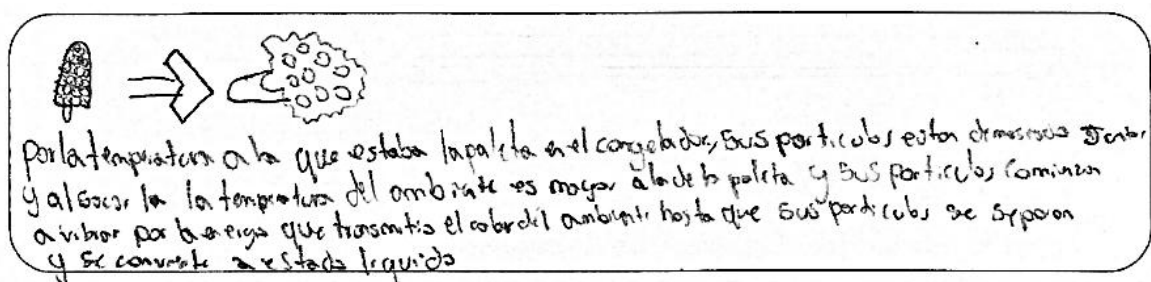 por la tempratura a la que estaba la paleta en el congelador, sus particulas estan demasiado juntas
y al sacar la la tempratura del ambiente es mayor a la de la paleta y sus particulas comienzan
a vibrar por la energia que transmitia el calor del ambiente hasta que sus particulas se separan
y se convierte a estado liquido